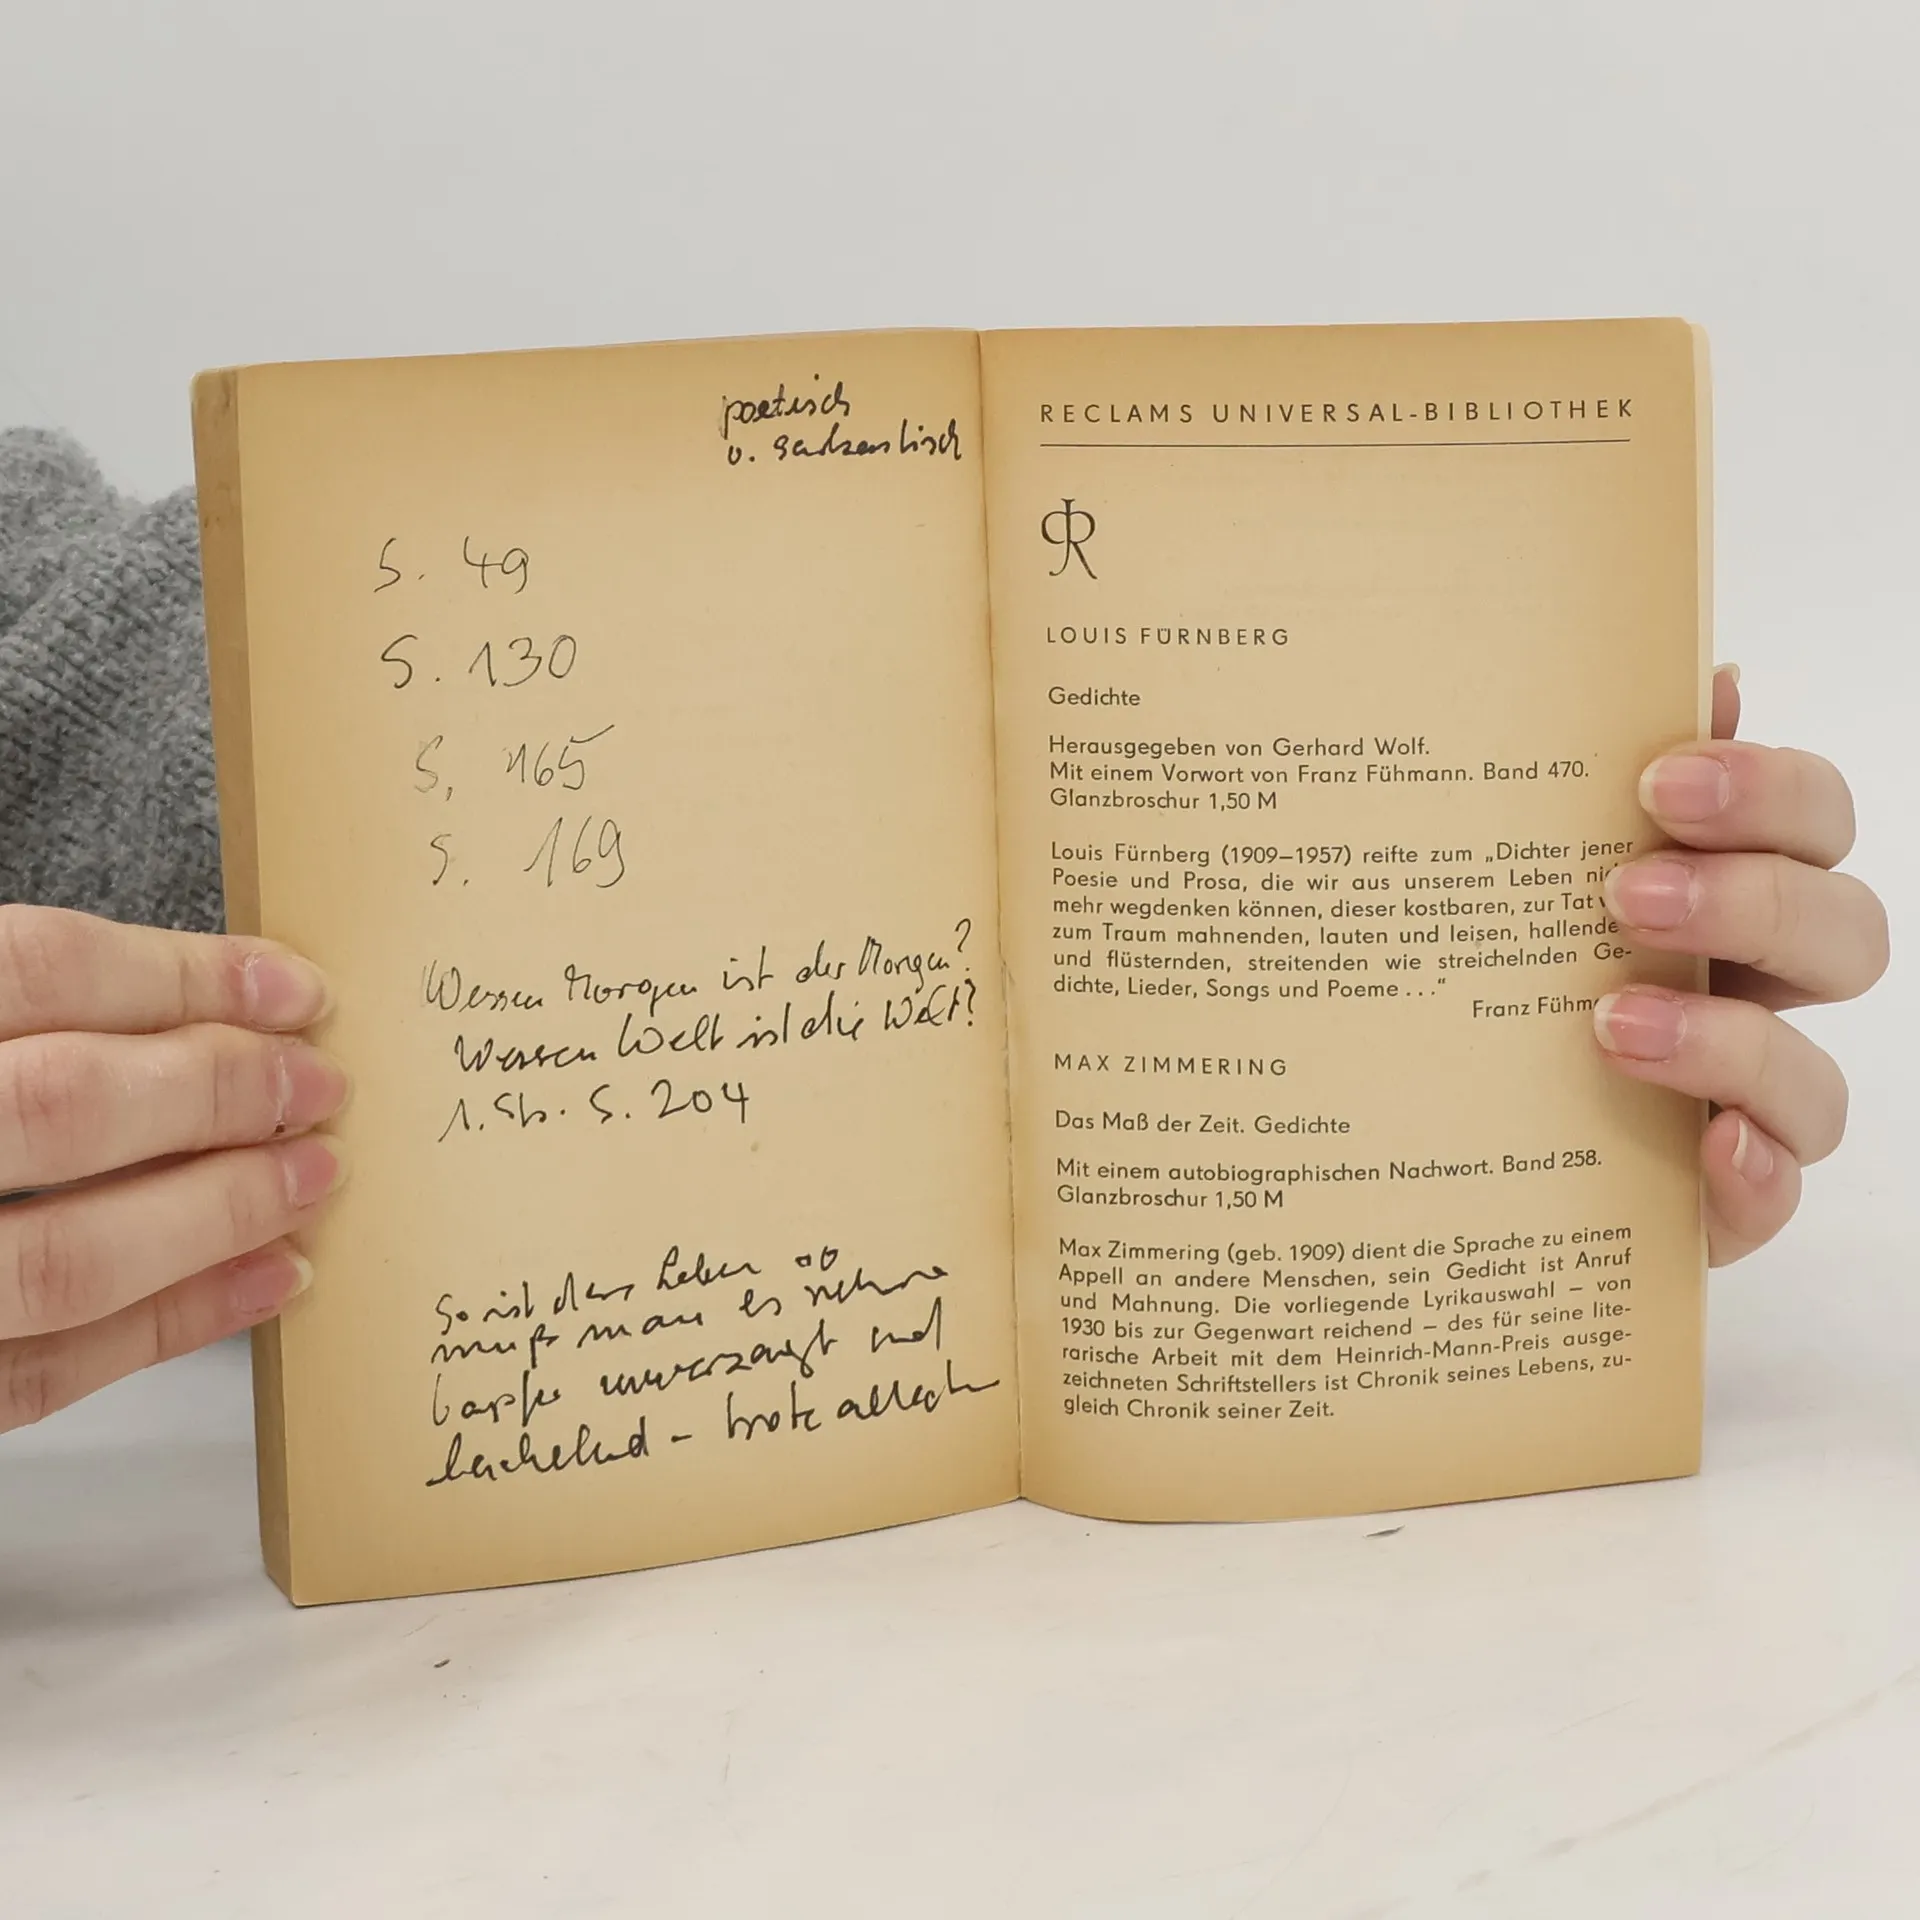 poetisch
u. sarkastisch
S. 49
S. 130
S. 165
S. 169
Wessen Morgen ist der Morgen?
Wessen Welt ist die Welt?
1. Str. S. 204
So ist das Leben so
muß man es nehmen
tapfer unverzagt und
lächelnd – trotz alledem
RECLAMS UNIVERSAL-BIBLIOTHEK
LOUIS FÜRNBERG
Gedichte
Herausgegeben von Gerhard Wolf.
Mit einem Vorwort von Franz Fühmann. Band 470.
Glanzbroschur 1,50 M
Louis Fürnberg (1909–1957) reifte zum „Dichter jener
Poesie und Prosa, die wir aus unserem Leben
mehr wegdenken können, dieser kostbaren, zur Tat
zum Traum mahnenden, lauten und leisen, hallende
und flüsternden, streitenden wie streichelnden Ge-
dichte, Lieder, Songs und Poeme . . .“
Franz Fühm
MAX ZIMMERING
Das Maß der Zeit. Gedichte
Mit einem autobiographischen Nachwort. Band 258.
Glanzbroschur 1,50 M
Max Zimmering (geb. 1909) dient die Sprache zu einem
Appell an andere Menschen, sein Gedicht ist Anruf
und Mahnung. Die vorliegende Lyrikauswahl – von
1930 bis zur Gegenwart reichend – des für seine lite-
rarische Arbeit mit dem Heinrich-Mann-Preis ausge-
zeichneten Schriftstellers ist Chronik seines Lebens, zu-
gleich Chronik seiner Zeit.